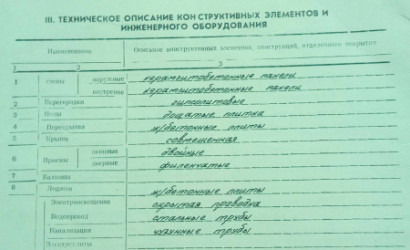 III. ТЕХНИЧЕСКОЕ ОПИСАНИЕ КОНСТРУКТИВНЫХ ЭЛЕМЕНТОВ И
ИНЖЕНЕРНОГО ОБОРУДОВАНИЯ
Наименование Описание конструктивных элементов, конструкций, отделочного покрытия
1 2 3
1 стены наружные керамзитобетонные панели
внутренние керамзитобетонные панели
2 Перегородки гипсолитовые
3 Полы дощатые плитка
4 Перекрытия ж/бетонные плиты
5 Крыша совмещенная
6 Проемы оконные двойные
дверные филенчатые
7 Балконы
8 Лоджии ж/бетонные плиты
Электроосвещение скрытая проводка
Водопровод стальные трубы
Канализация чугунные трубы
Электроплиты